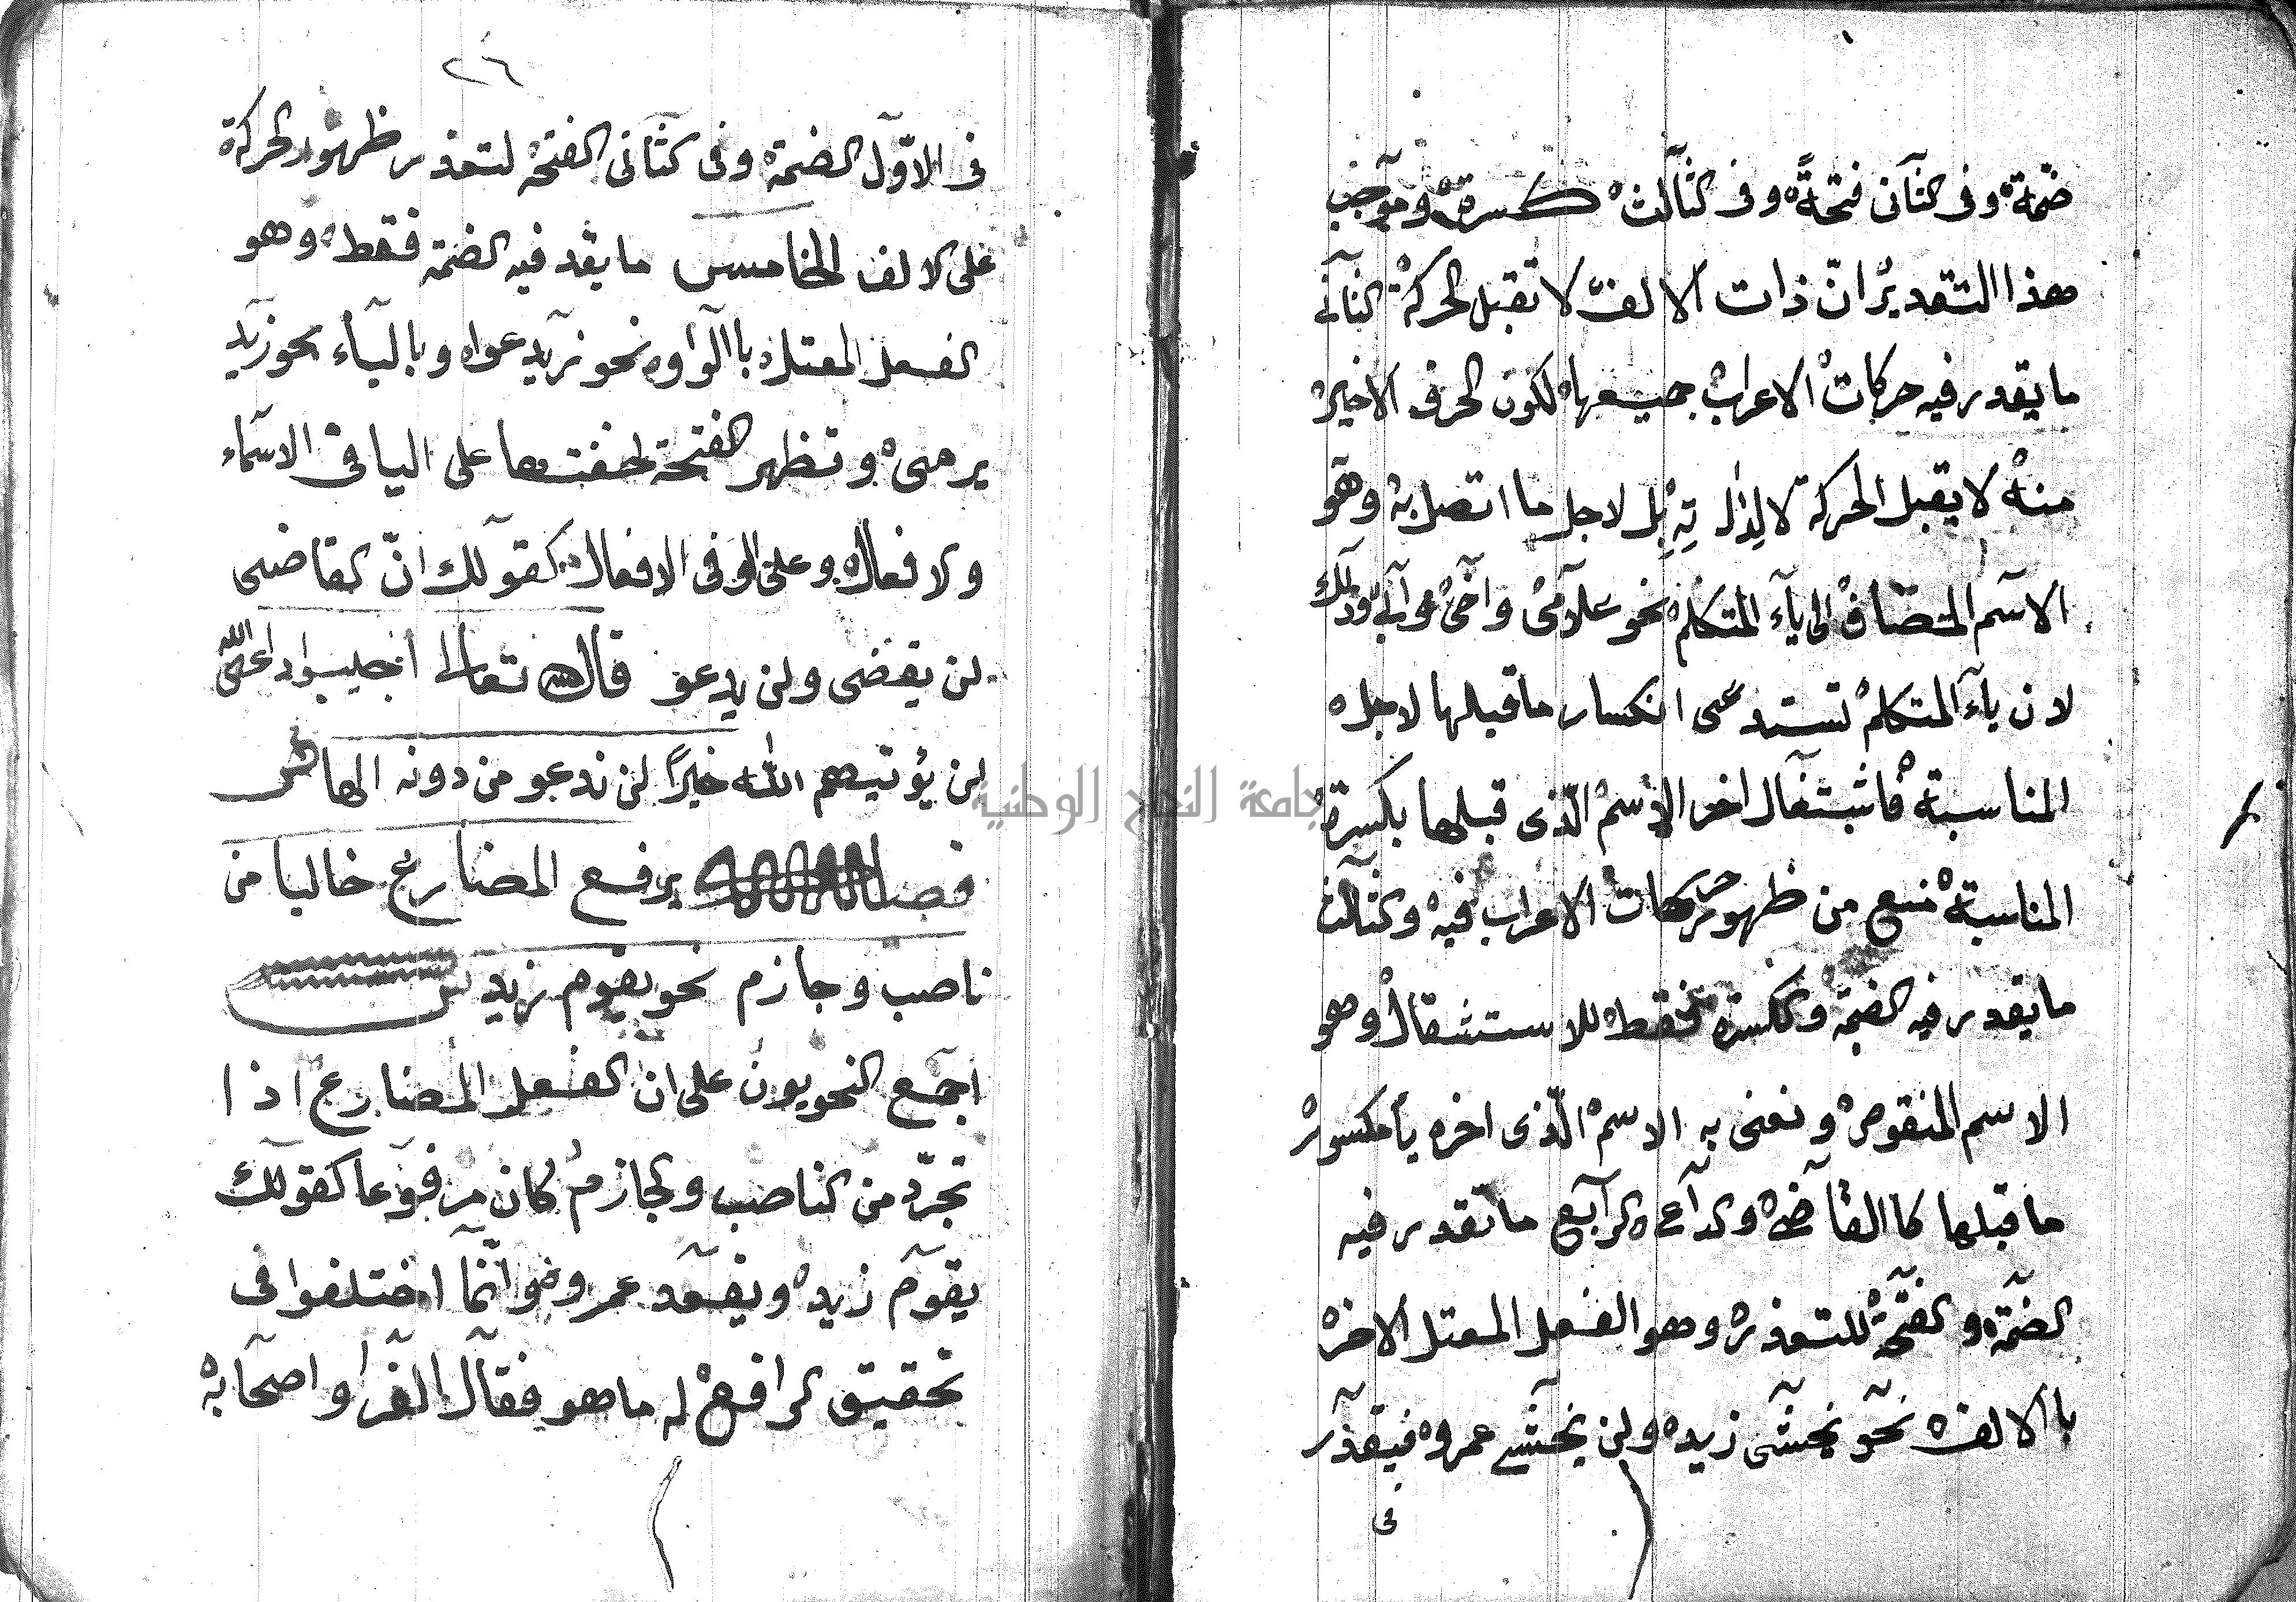 ضمة وفى الثآنى فتحةً وفى الثآلث كسرة وموجب
هذا التقدير انّ ذات الالف لا تقبل الحركة الثآنى
ما يقدر فيه حركات الاعراب جميعها لكون الحرف الاخير
منه لا يقبل الحركة لا لذاته بل لاجل ما اتصل به وهو
الاسم المضاف الى يآء المتكلم نحو غلآمى وآخى وآبى وذلك
لان يآء المتكلم تستدعى انكسار ما قبلها لاجل
المناسبة فاشتغآل اخر الاسم الّذى قبلها بكسرة
المناسبة منع من ظهور حركات الاعراب فيه والثآلث
ما يقدر فيه الضمة والكسرة فقط للاستثقال وهو
الاسم المنقوص ونعنى به الاسم الّذى اخره يآ مكسور
ما قبلها كاالقآضى والدآعى الرآبع ما تقدر فيه
الضمّة والفتحة للتعذر وهو الفعل المعتل الاخر
باالالف نحو يخشى زيد ولن يخشى عمرو فيقدر
فى
٢٦
فى الاوّل الضمة وفى الثآنى الفتحة لتعذر ظهور الحركة
على الالف الخامس ما يقد فيه الضمة فقط وهو
الفعل المعتل باالواو نحو زيد يدعوا وباليآء نحو زيد
يرمى وتظهر الفتحة لخفتها على اليا فى الاسمآء
والافعال وعلى الو فى الافعال كقولك انّ القاضى
لن يقضى ولن يدعو قال الله تعالى أجيبوا داعى الله
لن يؤتيهم الله خيرًا لن ندعو من دونه الها ش
فصل يرفع المضارع خاليا من
ناصب وجازم نحو يقوم زيد ش
اجمع النحويون على ان الفعل المضارع اذا
تجرّد من الناصب والجازم كان مرفوعا كقولك
يقوم زيد ويقعد عمرو وانّما اختلفوا فى
تحقيق الرافع له ما هو فقال الفرا واصحآبه
جامعة النجاح الوطنية